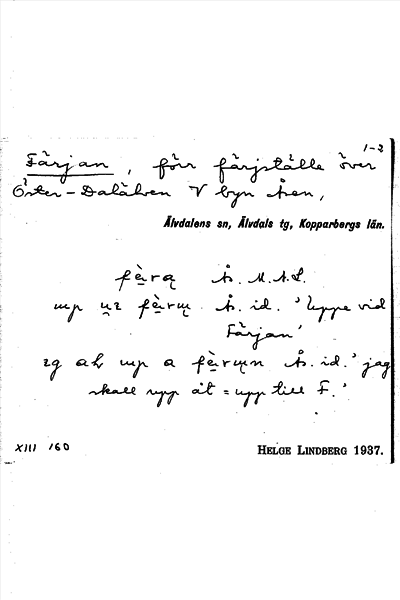 1-2
Färjan, förr färjställe över
Öster-Dalälven V byn Åsen,
Älvdalens sn, Älvdals tg, Kopparbergs län.
fὲ̱rą Ås. M.A.L.
up u̯r fὲ̱rųn Ås. id. 'uppe vid
Färjan'
up a fὲ̱rųn Ås. id. 'jag
skall upp åt = upp till F.'
XIII 160
HELGE LINDBERG 1937.